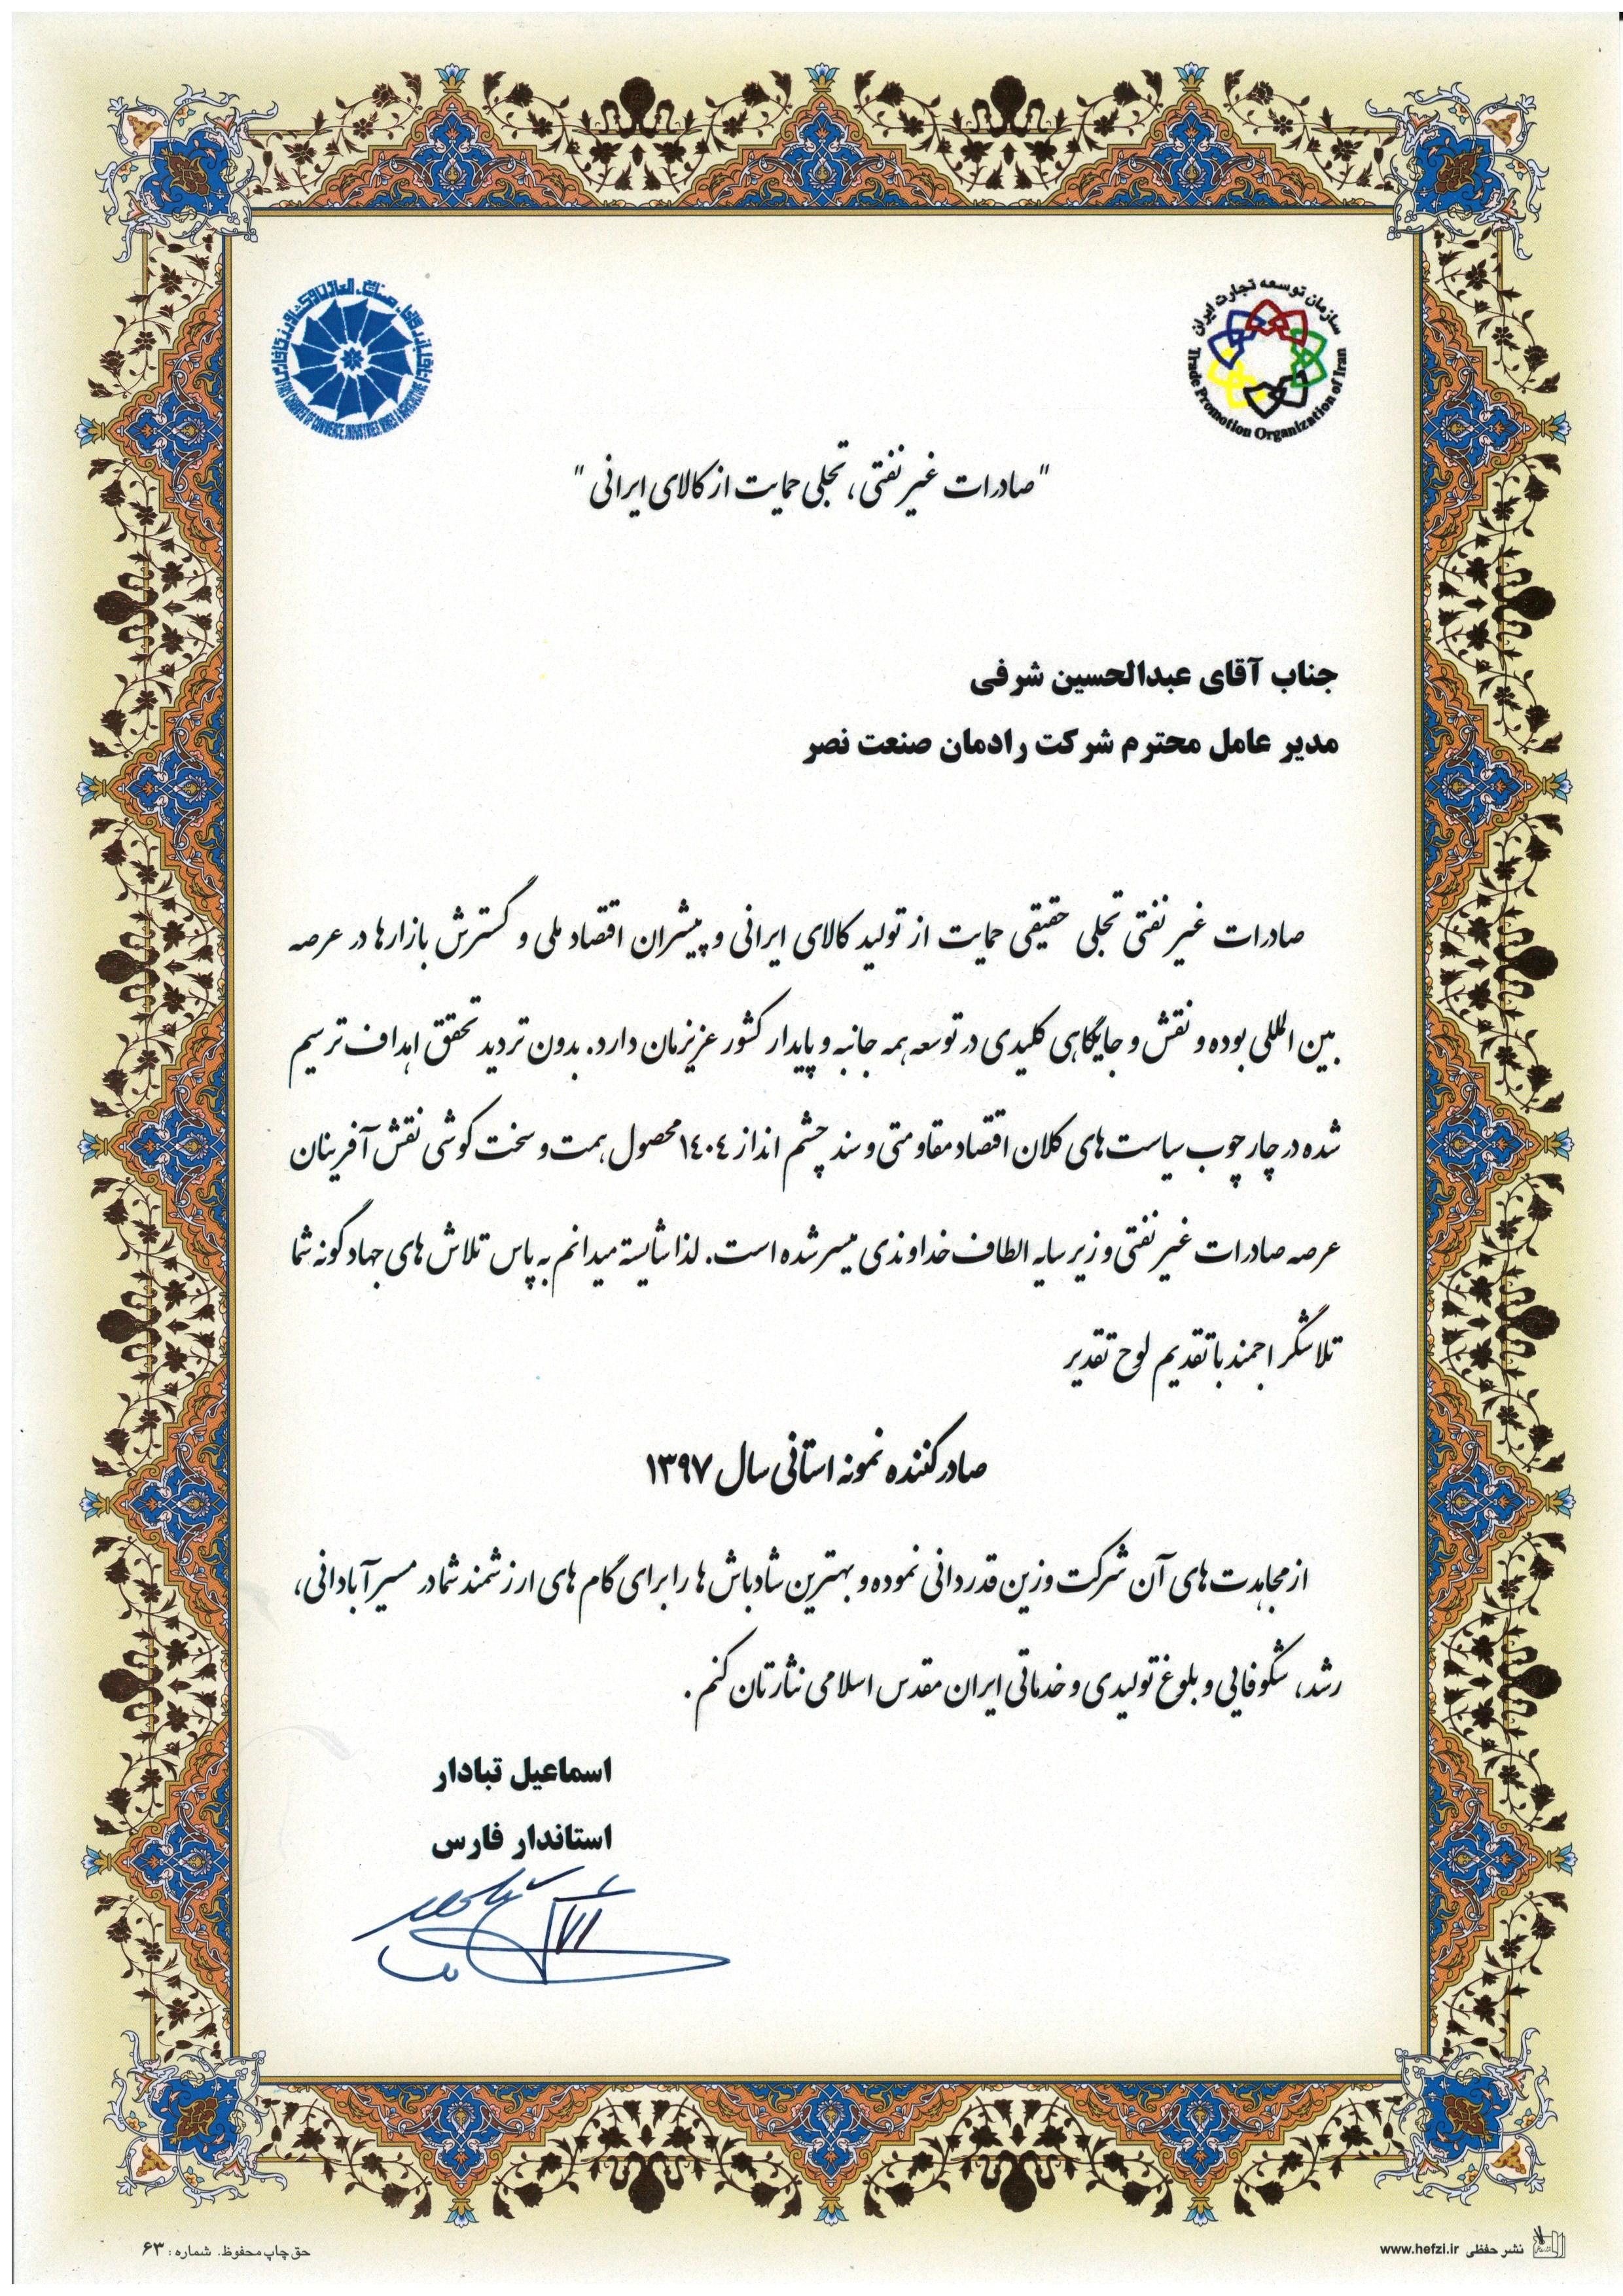 سازمان توسعه تجارت ایران
Trade Promotion Organization of Iran
"صادرات غیر نفتی، تجلی حمایت از کالای ایرانی"
جناب آقای عبدالحسین شرفی
مدیر عامل محترم شرکت رادمان صنعت نصر
صادرات غیر نفتی تجلی حقیقی حمایت از تولید کالای ایرانی و پیشران اقتصاد ملی و گسترش بازارها در عرصه
بین المللی بوده و نقش و جایگاهی کلیدی در توسعه همه جانبه و پایدار کشور عزیزمان دارد. بدون تردید تحقق اهداف ترسیم
شده در چارچوب سیاست های کلان اقتصاد مقاومتی و سند چشم انداز ١٤٠٤ محصول همت و سخت کوشی نقش آفرینان
عرصه صادرات غیر نفتی و زیر سایه الطاف خداوندی میسر شده است. لذا شایسته میدانم به پاس تلاش های جهادگونه شما
تلاشگر ارجمند با تقدیم لوح تقدیر
صادرکننده نمونه استانی سال ۱۳۹۷
از مجاهدت های آن شرکت وزین قدردانی نموده و بهترین شادباش ها را برای گام های ارزشمند شما در مسیر آبادانی،
رشد، شکوفایی و بلوغ تولیدی و خدماتی ایران مقدس اسلامی نثارتان کنم.
اسماعیل تبادار
استاندار فارس
نشر حفظی www.hefzi.ir
حق چاپ محفوظ. شماره: ۶۳